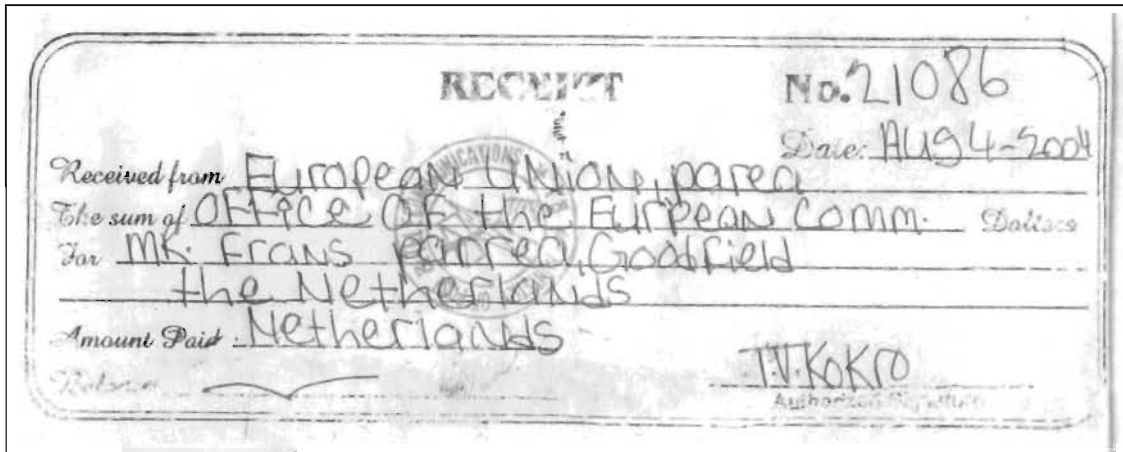 RECEIPT
No. 21086
Date: AUG 4-2004
Received from European UNion, parea
The sum of OFFICE OF the EURPEAN Comm. Dollars
For MR. Frans Goodfield
the Netherlands
Amount Paid Netherlands
Balance
T.V.KOKRO
Authorized Signature